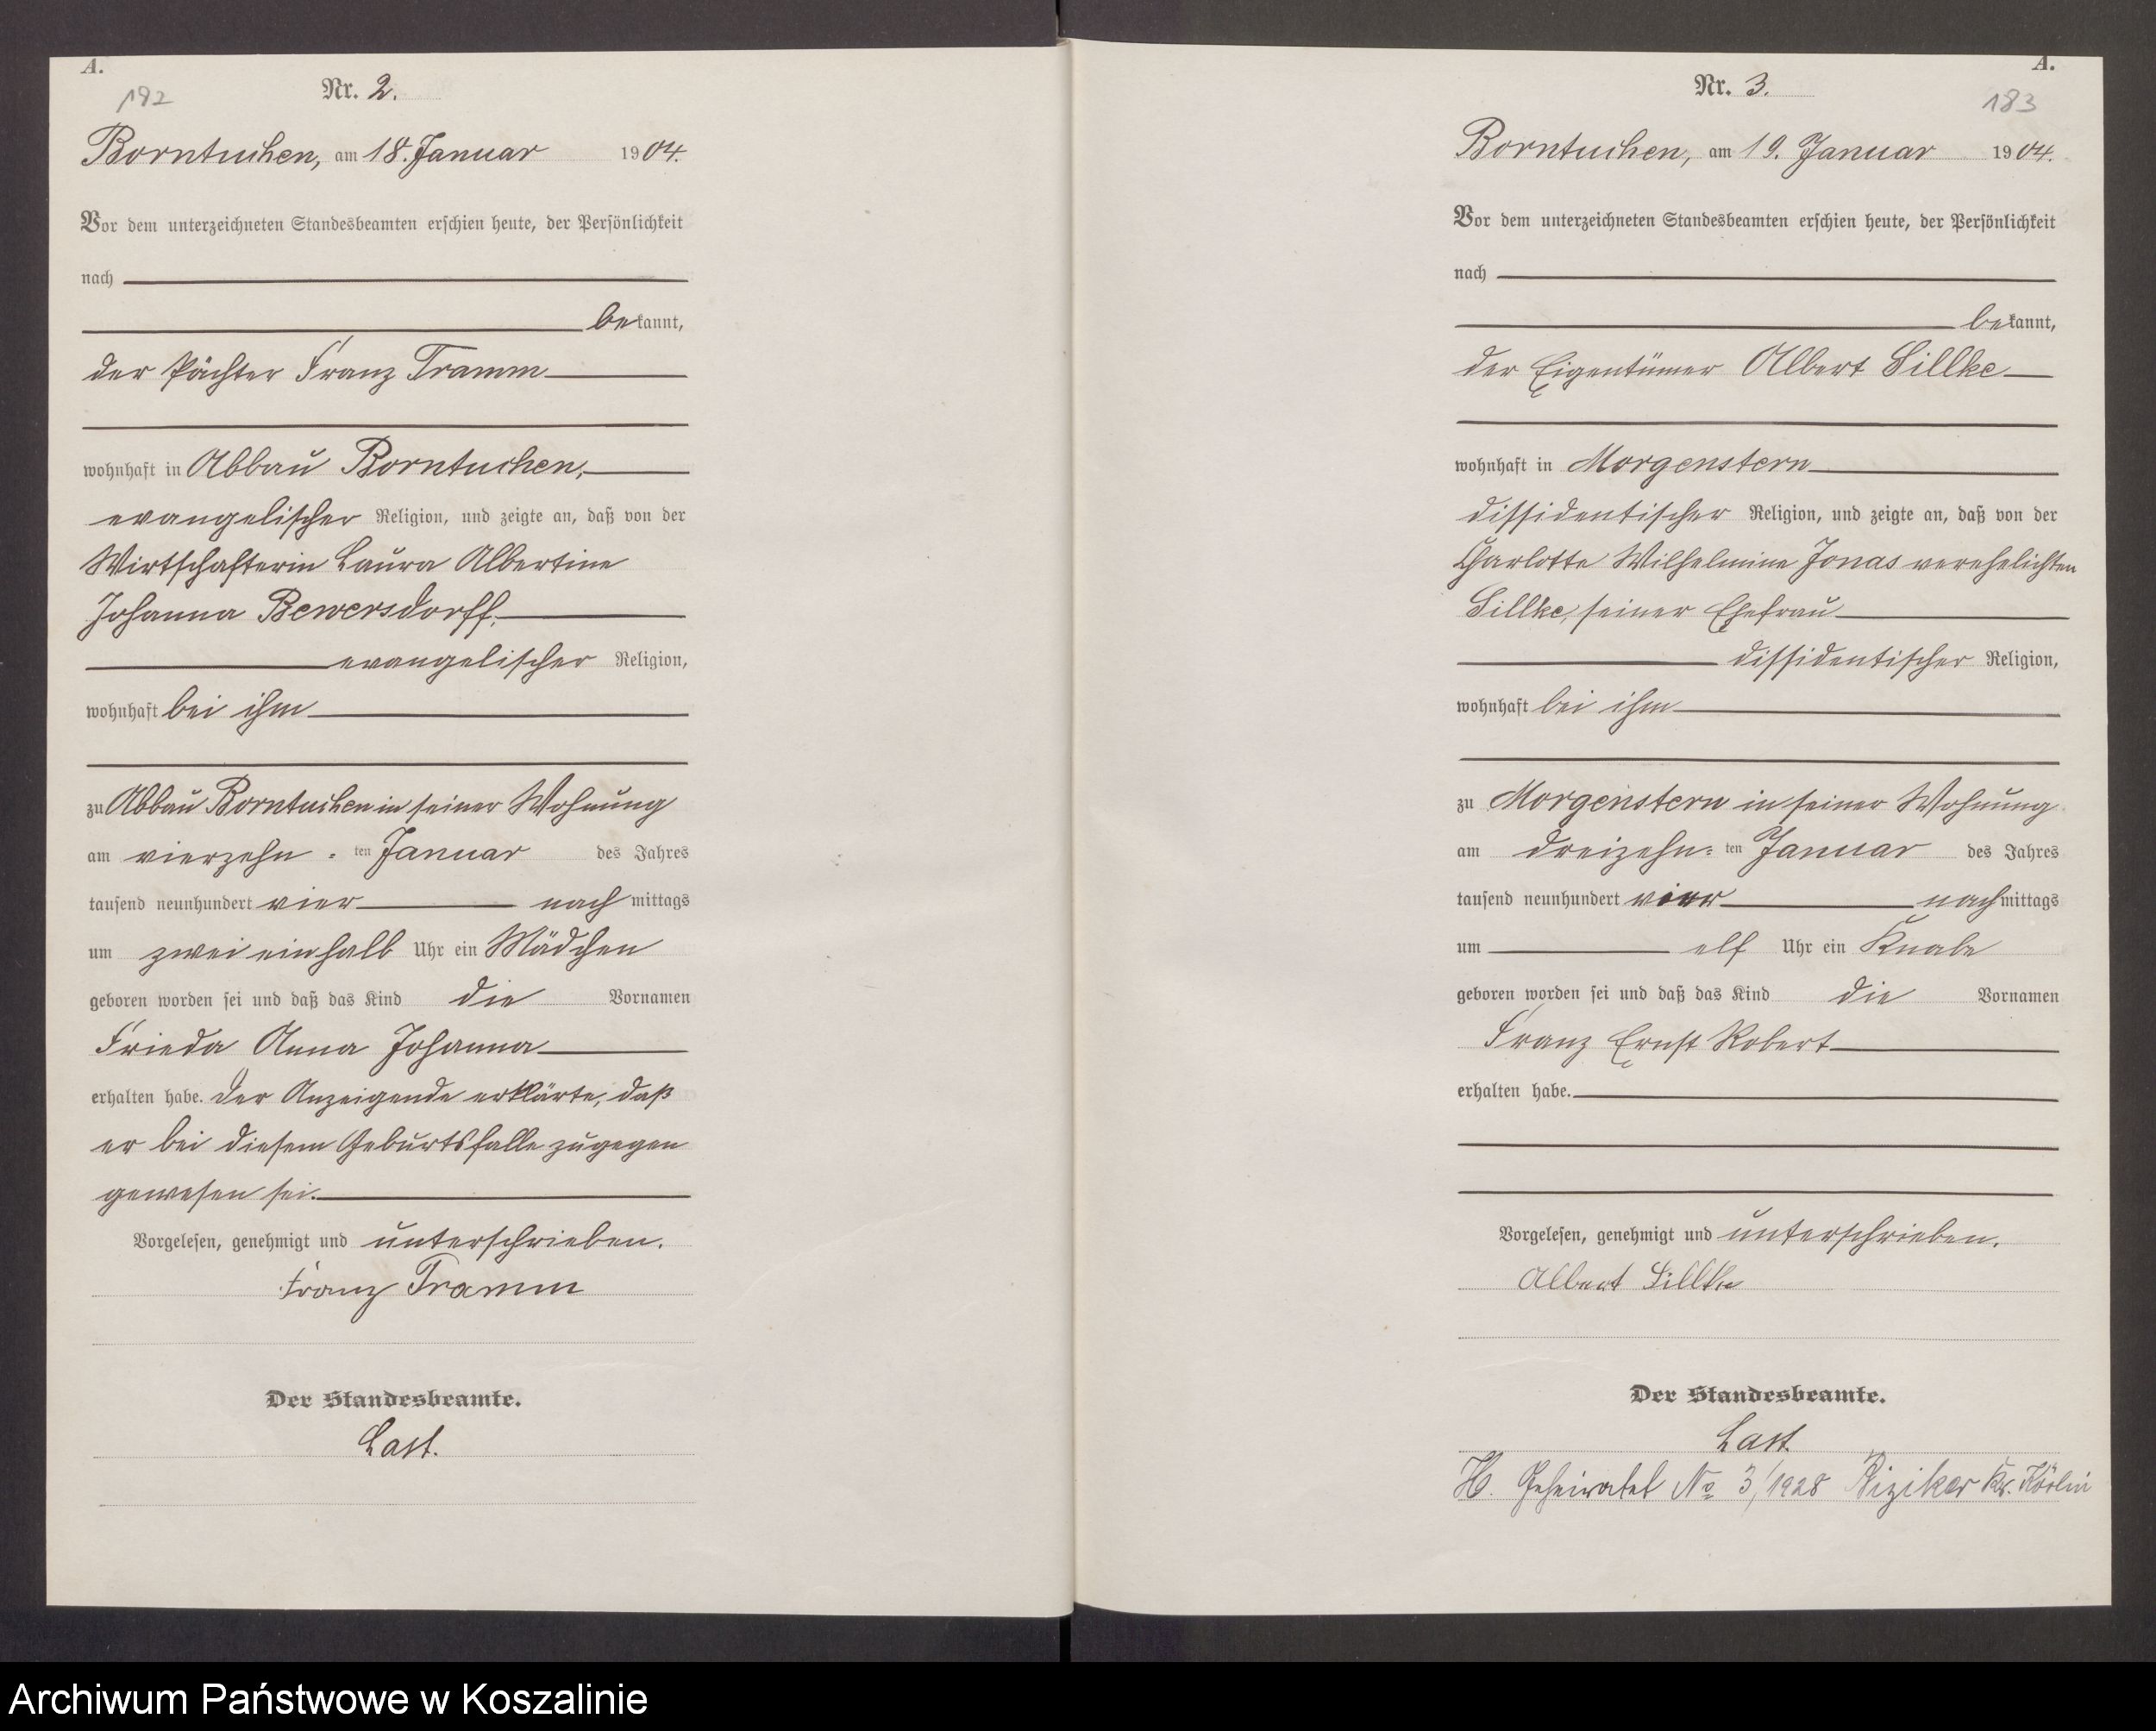 A.
192
Nr. 2.
Borntuchen, am 18. Januar 1904.
Vor dem unterzeichneten Standesbeamten erschien heute, der Persönlichkeit
nach
bekannt,
der Pächter Franz Tramm
wohnhaft in Abbau Borntuchen,
evangelischer Religion, und zeigte an, daß von der
Wirtschafterin Laura Albertine
Johanna Bewersdorff,
evangelischer Religion,
wohnhaft bei ihm
zu Abbau Borntuchen in seiner Wohnung
am vierzehn-ten Januar des Jahres
tausend neunhundert vier nachmittags
um zwei einhalb Uhr ein Mädchen
geboren worden sei und daß das Kind die Vornamen
Frieda Anna Johanna
erhalten habe. Der Anzeigende erklärte, daß
er bei diesem Geburtsfalle zugegen
gewesen sei.
Vorgelesen, genehmigt und unterschrieben.
Franz Tramm
Der Standesbeamte.
Last.
A.
183
Nr. 3.
Borntuchen, am 19. Januar 1904.
Vor dem unterzeichneten Standesbeamten erschien heute, der Persönlichkeit
nach
bekannt,
der Eigentümer Albert Sillke
wohnhaft in Morgenstern
dissidentischer Religion, und zeigte an, daß von der
Charlotte Wilhelmine Jonas verehelichten
Sillke, seiner Ehefrau
dissidentischer Religion,
wohnhaft bei ihm
zu Morgenstern in seiner Wohnung
am dreizehn-ten Januar des Jahres
tausend neunhundert vier nachmittags
um elf Uhr ein Knabe
geboren worden sei und daß das Kind die Vornamen
Franz Ernst Robert
erhalten habe.
Vorgelesen, genehmigt und unterschrieben.
Albert Sillke
Der Standesbeamte.
Last.
H. Geheiratet No 3/1928 Kr. Köslin
Archiwum Państwowe w Koszalinie